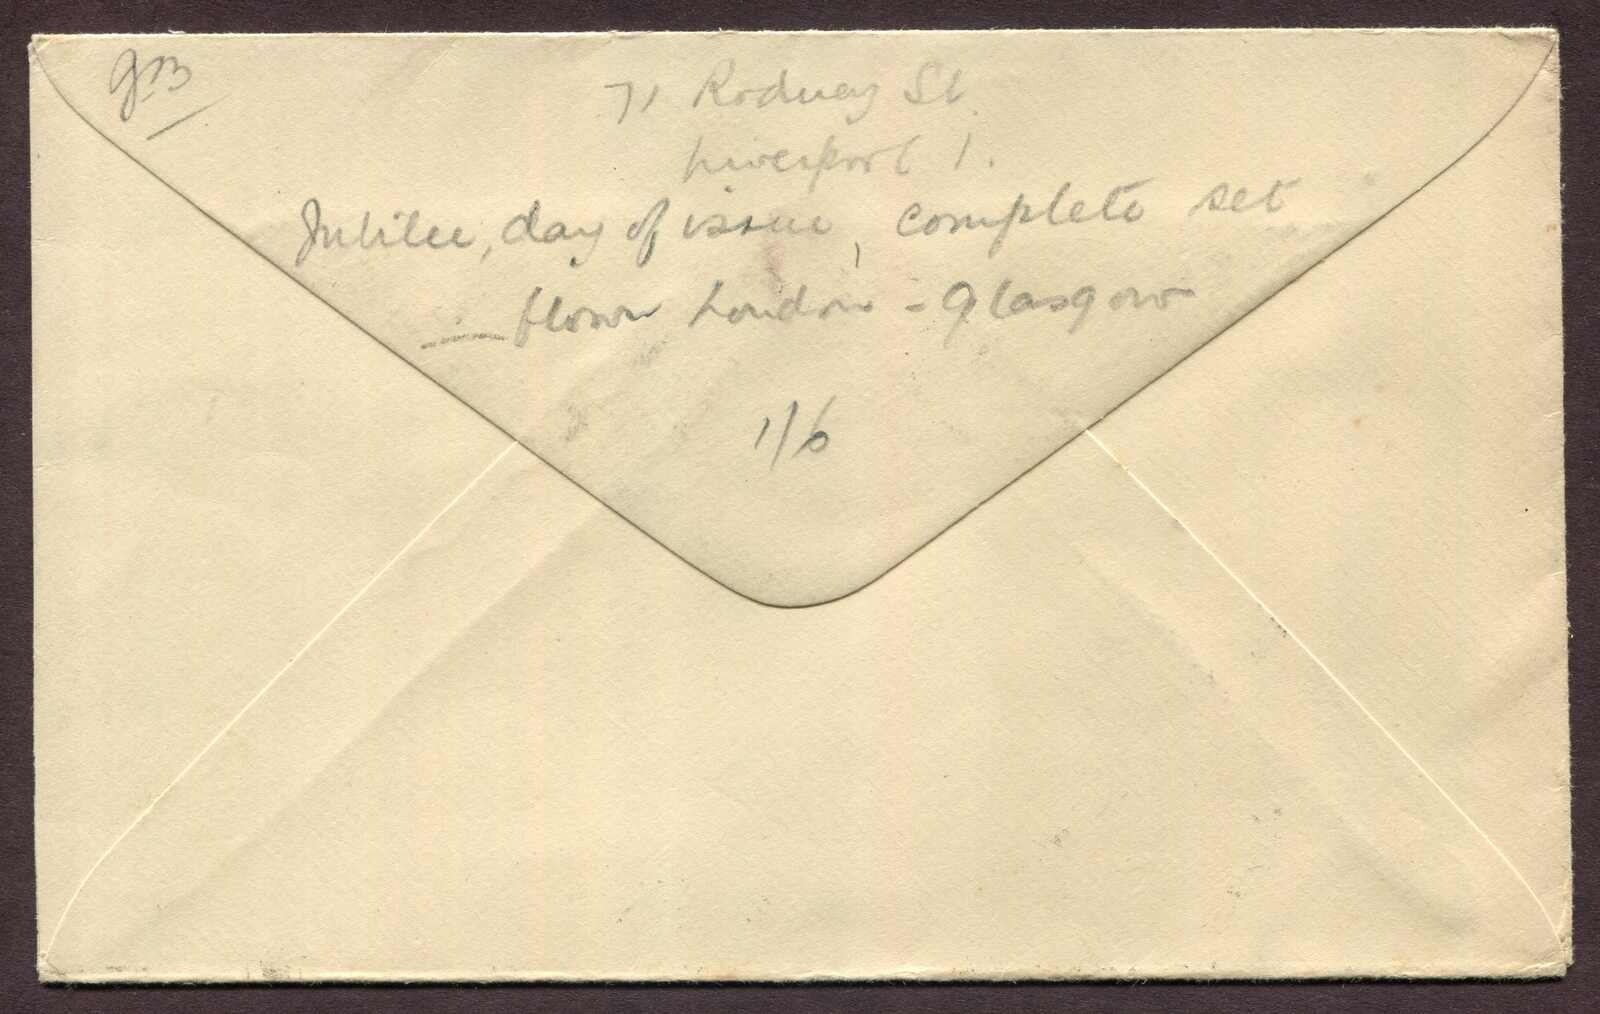 GB
71 Rodney St.
Liverpool 1.
Jubilee, day of issue, complete set
— flown London - Glasgow
1/6